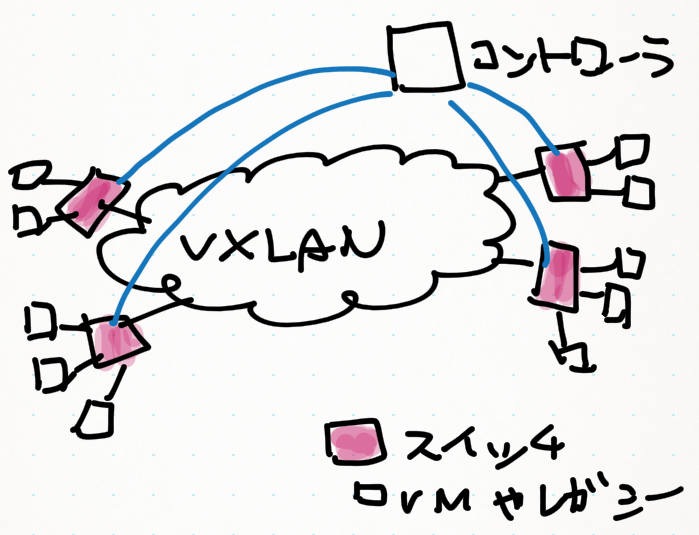 コントローラ
VXLAN
スイッチ
VMやレガシー